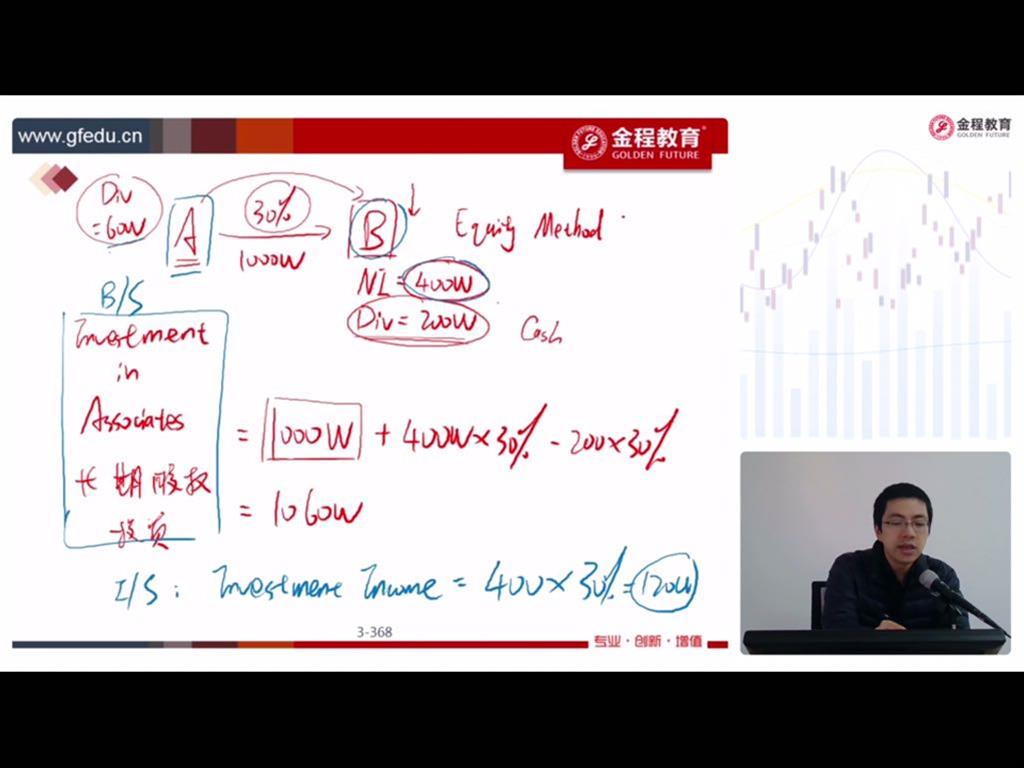 www.gfedu.cn
金程教育
GOLDEN FUTURE
金程教育
GOLDEN FUTURE
Div
=60W
A
30%
1000W
B
Equity Method
NI=400W
Div=200W
Cash
B/S
Investment
in
Associates
长期股权
投资
= 1000W + 400W×30% - 200×30%
= 1060W
I/S: Investment Income = 400×30%=120W
3-368
专业·创新·增值